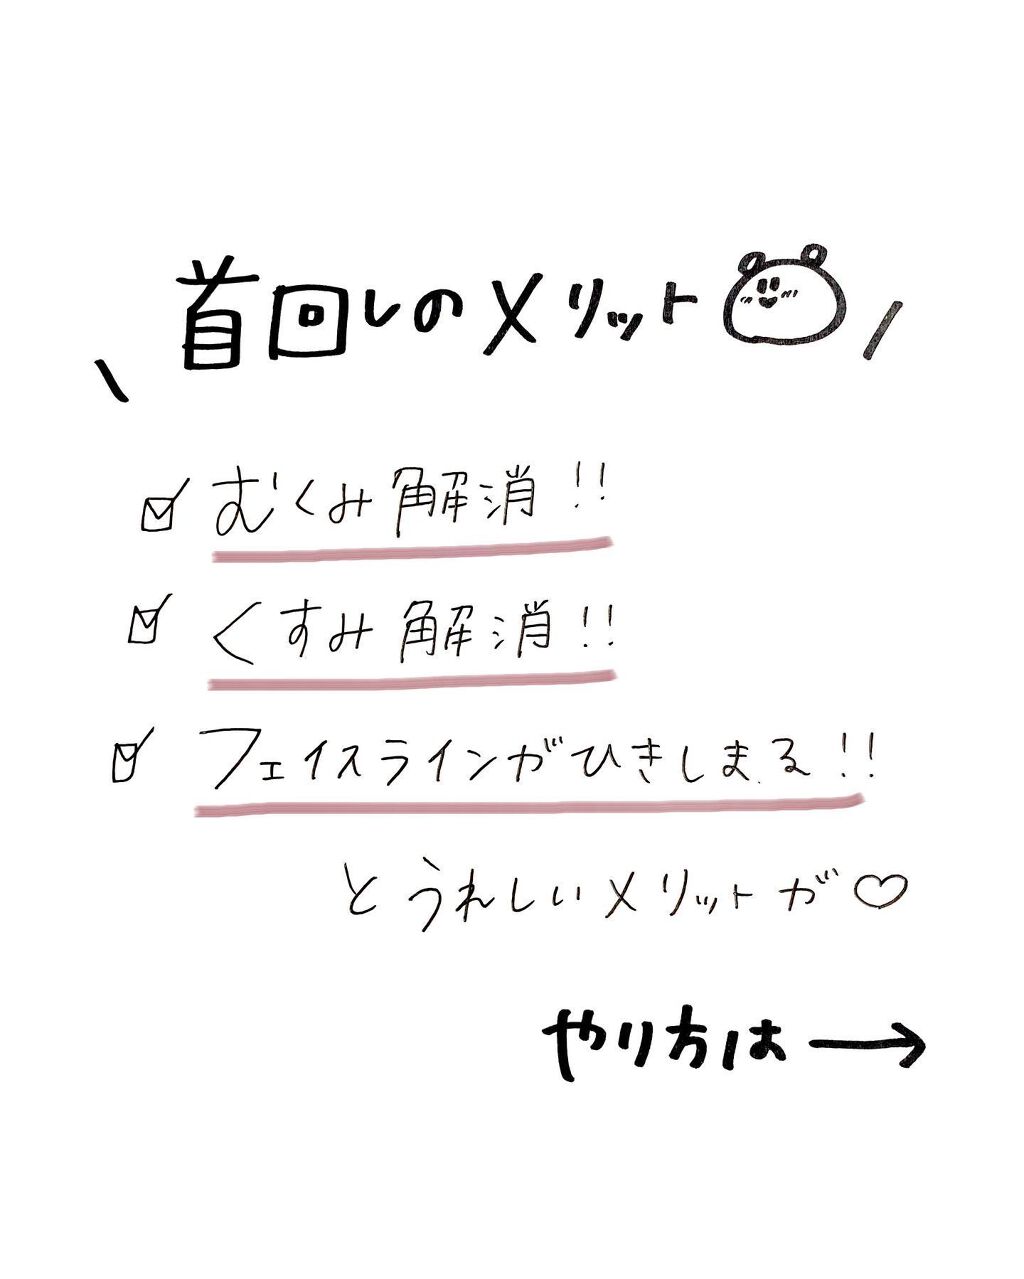 首回しのメリット
むくみ解消!!
くすみ解消!!
フェイスラインがひきしまる!!
とうれしいメリットが♡
やり方は→